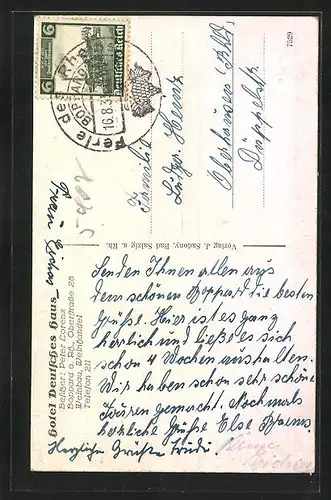 7529
6
Deutsches Reich
6
Perle des Rheins
BOPPARD
16.8.3
Familie
Ludger
Oberhausen
Düppelstr.
Verlag J. Sadony, Bad Salzig a. Rh.
Hotel Deutsches Haus
Besitzer: Peter Lorenz
Boppard a. Rh., Oberstraße 28
Weinbau, Weinhandel
Telefon 211
Senden Ihnen allen aus
dem schönen Boppard die besten
Grüße. Hier ist es ganz
herrlich und ließe es sich
schon 4 Wochen aushalten.
Wir haben schon sehr schöne
Touren gemacht. Nochmals
herzliche Grüße Else
Herzliche Grüße